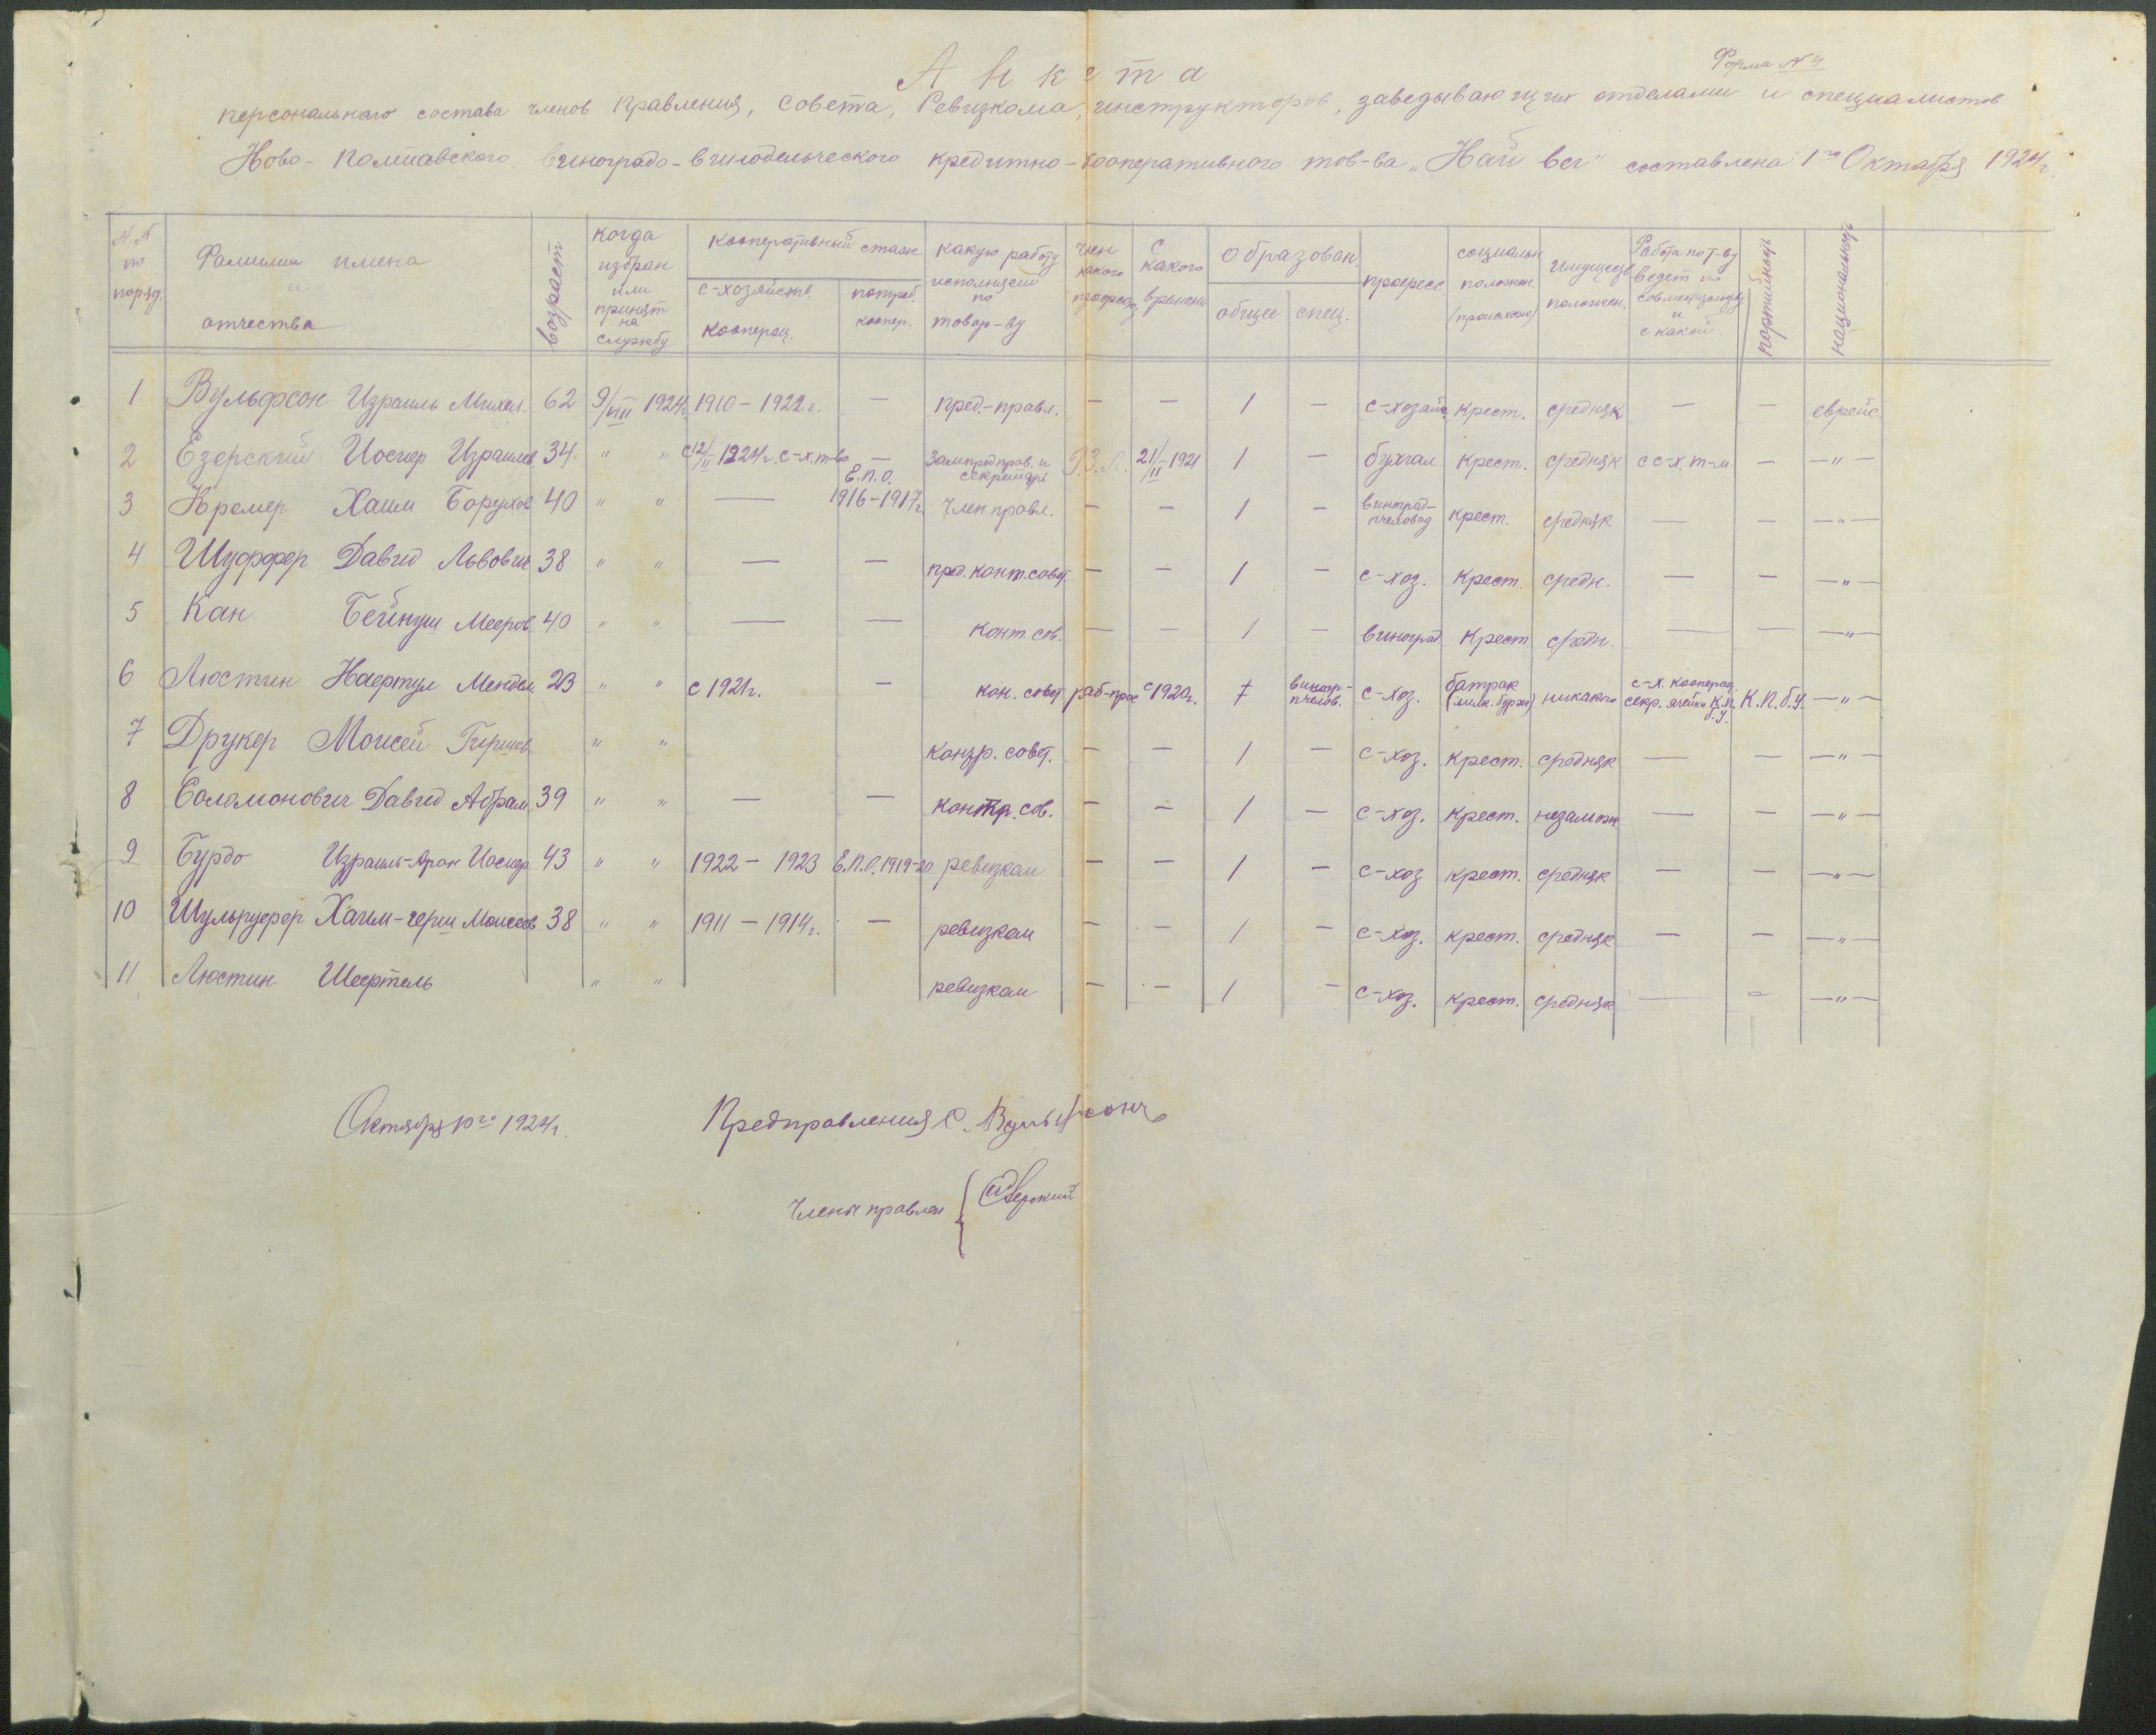 Форма №4
Анкета
персонального состава членов Правления, Совета, Ревизкома, инструкторов, заведывающих отделами и специалистов
Ново-Полтавского виноградо-винодельческого кредитно-кооперативного тов-ва „Най вег" составлена 1го Октября 1924г.
N.N по поряд. Фамилии имена и отчества возраст когда избран или принят на службу кооперативный стаж с-хозяйств. коопер. потреб. коопер. какую работу исполняет по товар-ву член какого профсоюз с какого времени образован. общее спец. професс социальн положен. (происхож) имуществ положен. Работа по т-ву ведет по совместительству и с какой партийность национальность
1 Вульфсон Израиль Михел. 62 9/VIII 1924г. 1910-1922г. — пред.-правл. — — 1 — с-хозяйс. крест. средняк — — еврейс.
2 Езерский Иосиф Израилев 34 " " с 12/II-1924г. с-х.т-во — Зампредправ. и секретарь Р.З.Л. 21/II-1921 1 — бухгал. крест. средняк с с-х. т-м — —"—
3 Кремер Хаим Борухов 40 " " — Е.П.О. 1916-1917г. Член правл. — — 1 — виноград-пчеловод крест. средняк — — —"—
4 Шуффер Давид Львович 38 " " — — пред. конт. совет. — — 1 — с-хоз. крест. средн. — — —"—
5 Кан Бейнуш Мееров 40 " " — — конт. сов. — — 1 — виноград крест. средн. — — —"—
6 Люстин Нафтул Мендел. 23 " " с 1921г. — кон. совет раб-прос с 1920г. 7 виногр-пчелов. с-хоз. батрак (мелк. буржу) никакого с-х. кооперац. секр. ячейки К.П.б.У. К.П.б.У. —"—
7 Друкер Моисей Гиршев " " контр. совет. — — 1 — с-хоз. крест. средняк — — —"—
8 Соломонович Давид Абрам. 39 " " — — контр. сов. — — 1 — с-хоз. крест. незамож — — —"—
9 Бурдо Израиль-Арон Иосиф 43 " " 1922 - 1923 Е.П.О. 1919-20 ревизком — — 1 — с-хоз крест. средняк — — —"—
10 Шульруфер Хаим-герш Моисеев 38 " " 1911 - 1914г. — ревизком — — 1 — с-хоз. крест. средняк — — —"—
11 Люстин Шефтель " " ревизком — — 1 — с-хоз. крест. средняк — — —"—
Октября 1го 1924г. Предправления С. Вульфсон
Члены правлен { Езерский